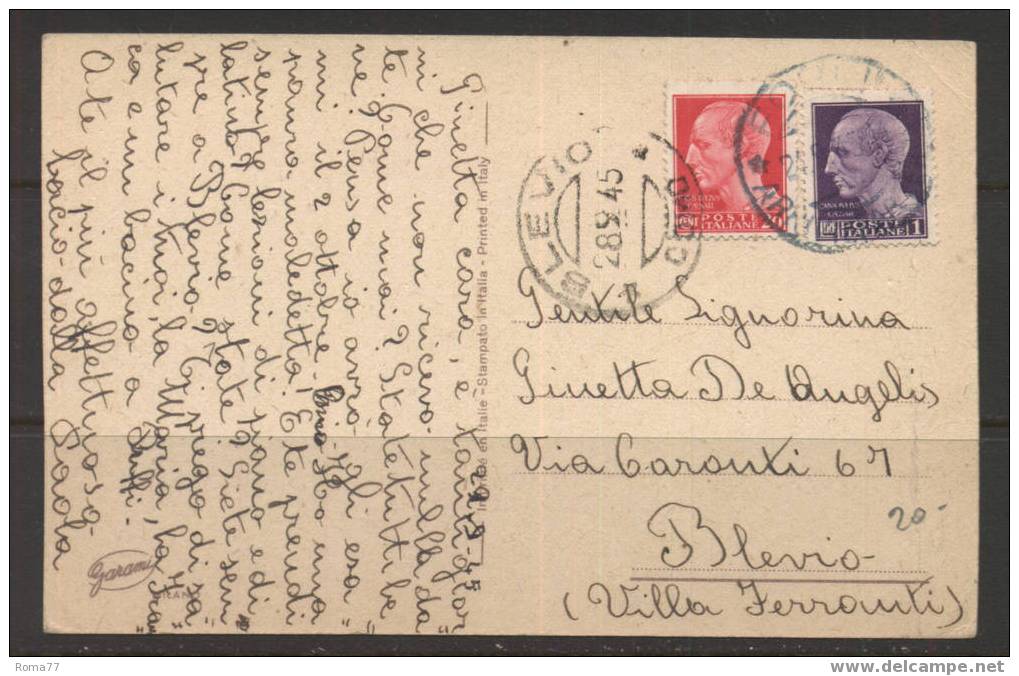 24-9-45
Ginetta cara, è tanti gior
ni che non ricevo nulla da
te. Come mai? State tutti be
ne? Pensa io avrò gli esa
mi il 2 ottobre. Ho una
paura maledetta! E te prendi
sempre lezioni di piano e di
latino? Come state? Siete sem
pre a Blevio? Ti prego di sa
lutare i tuoi, la Maria, la
ca e un bacino a
A te il più affettuoso
bacio dalla Paola
Garami
Imprimé en Italie - Stampato in Italia - Printed in Italy
BLEVIO
28.9.45
COMO
POSTE
ITALIANE 20
POSTE
ITALIANE 1
Gentile Signorina
Ginetta De Angelis
Via Caronti 67
Blevio
(Villa Ferranti)
20-
Roma77
www.delcampe.net